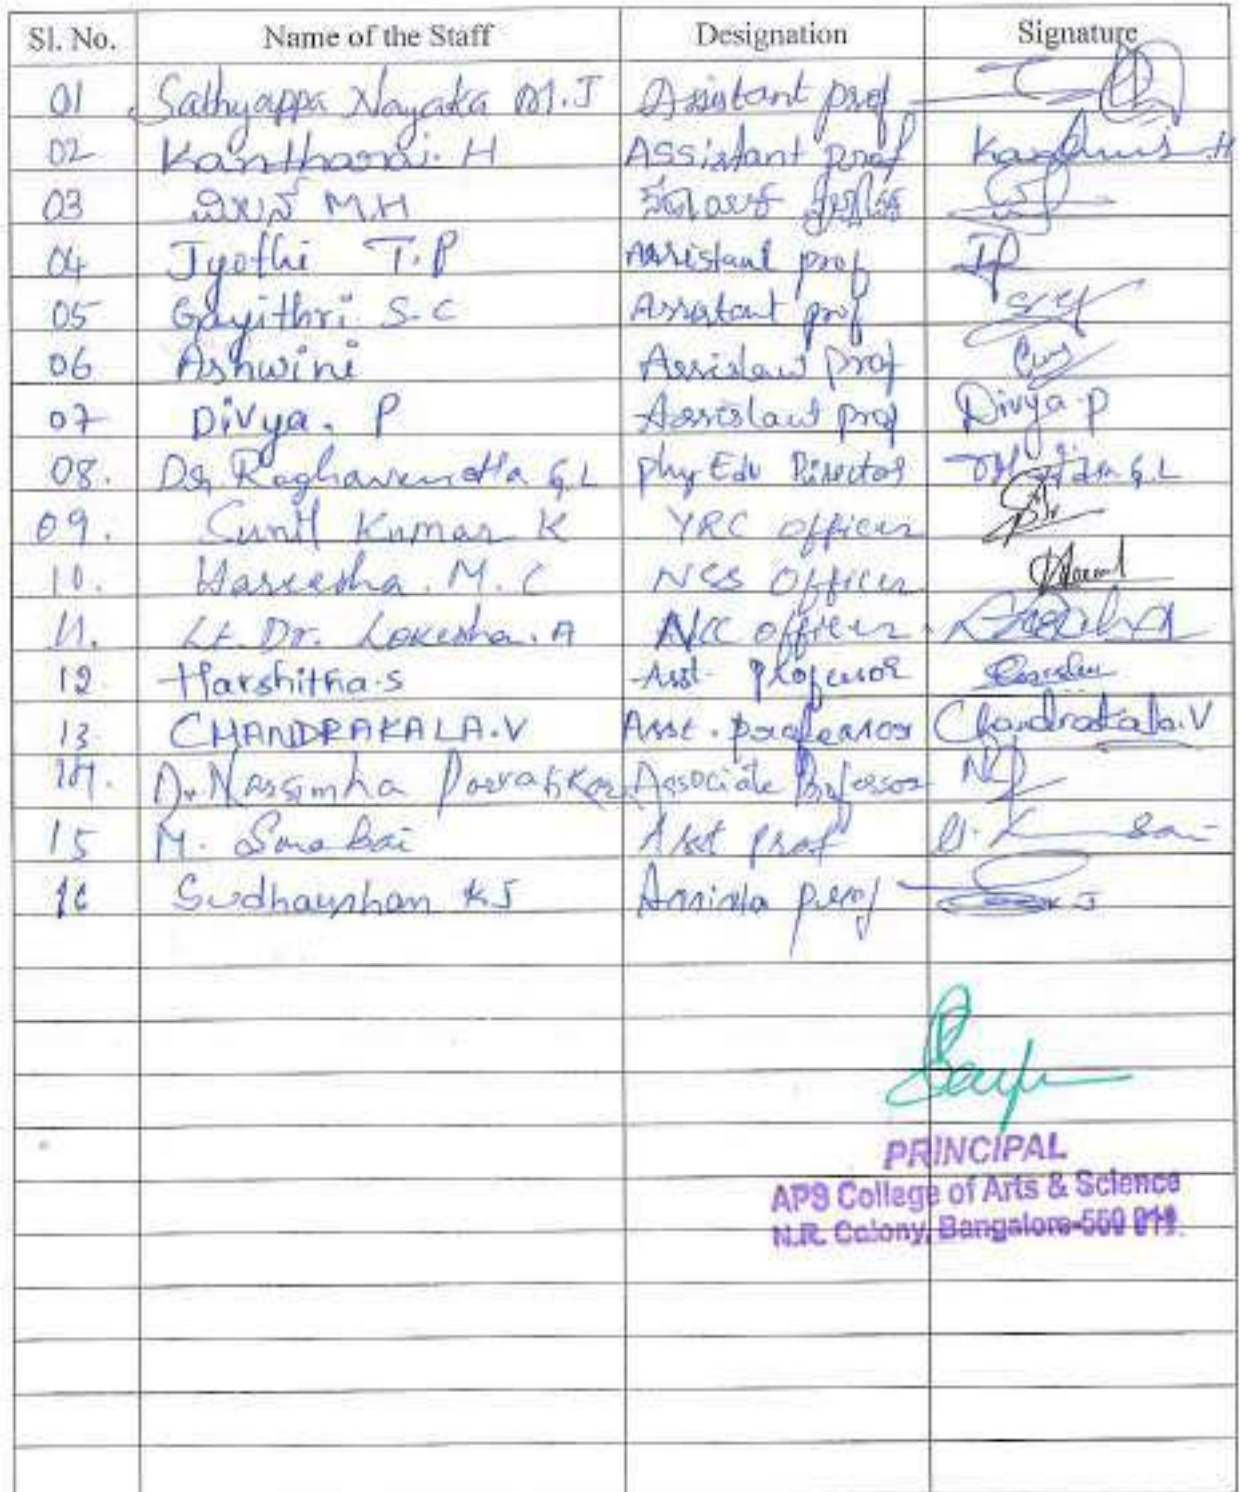 Sl. No. Name of the Staff Designation Signature
01 Sathyappa Nayaka M.J Assistant prof
02 Kantharai. H Assistant prof
03 M.H
04 Jyothi T.P Assistant prof
05 Gayithri S.C Assistant prof
06 Ashwini Assistant prof
07 Divya. P Assistant prof Divya.P
08. Dr. Raghavendra G.L phy Edu Director G.L
09. Sunil Kumar K YRC officer
10. Hareesha. M. C NSS officer
11. Lt. Dr. Lokesha. A NCC officer
12 Harshitha.S Asst. Professor
13 CHANDRAKALA.V Asst. professor Chandrakala.V
14. Dr. Narsimha Associate Professor
15 M. bai Asst prof
16 Sudharshan K J prof K J
PRINCIPAL
APS College of Arts & Science
N.R. Colony, Bangalore-560 019.